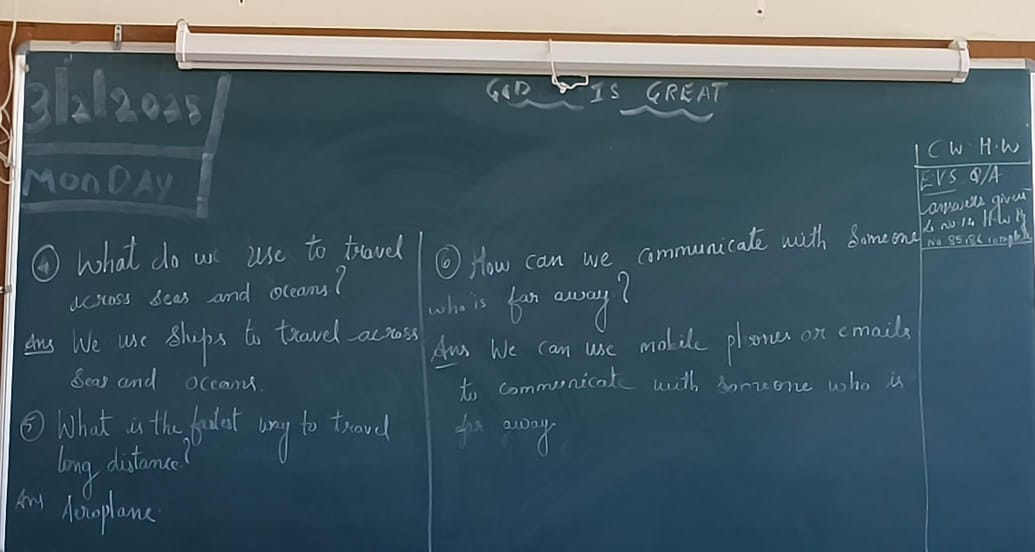 3/2/2025
MONDAY
GOD IS GREAT
C W. H.W
EVS Q/A
answers given
L. no 14 H.W
No 85, 86 complete
④ What do we use to travel
across seas and oceans?
Ans We use ships to travel across
seas and oceans.
⑤ What is the fastest way to travel
long distance?
Ans Aeroplane.
⑥ How can we communicate with someone
who is far away?
Ans We can use mobile phones or emails
to communicate with someone who is
far away.